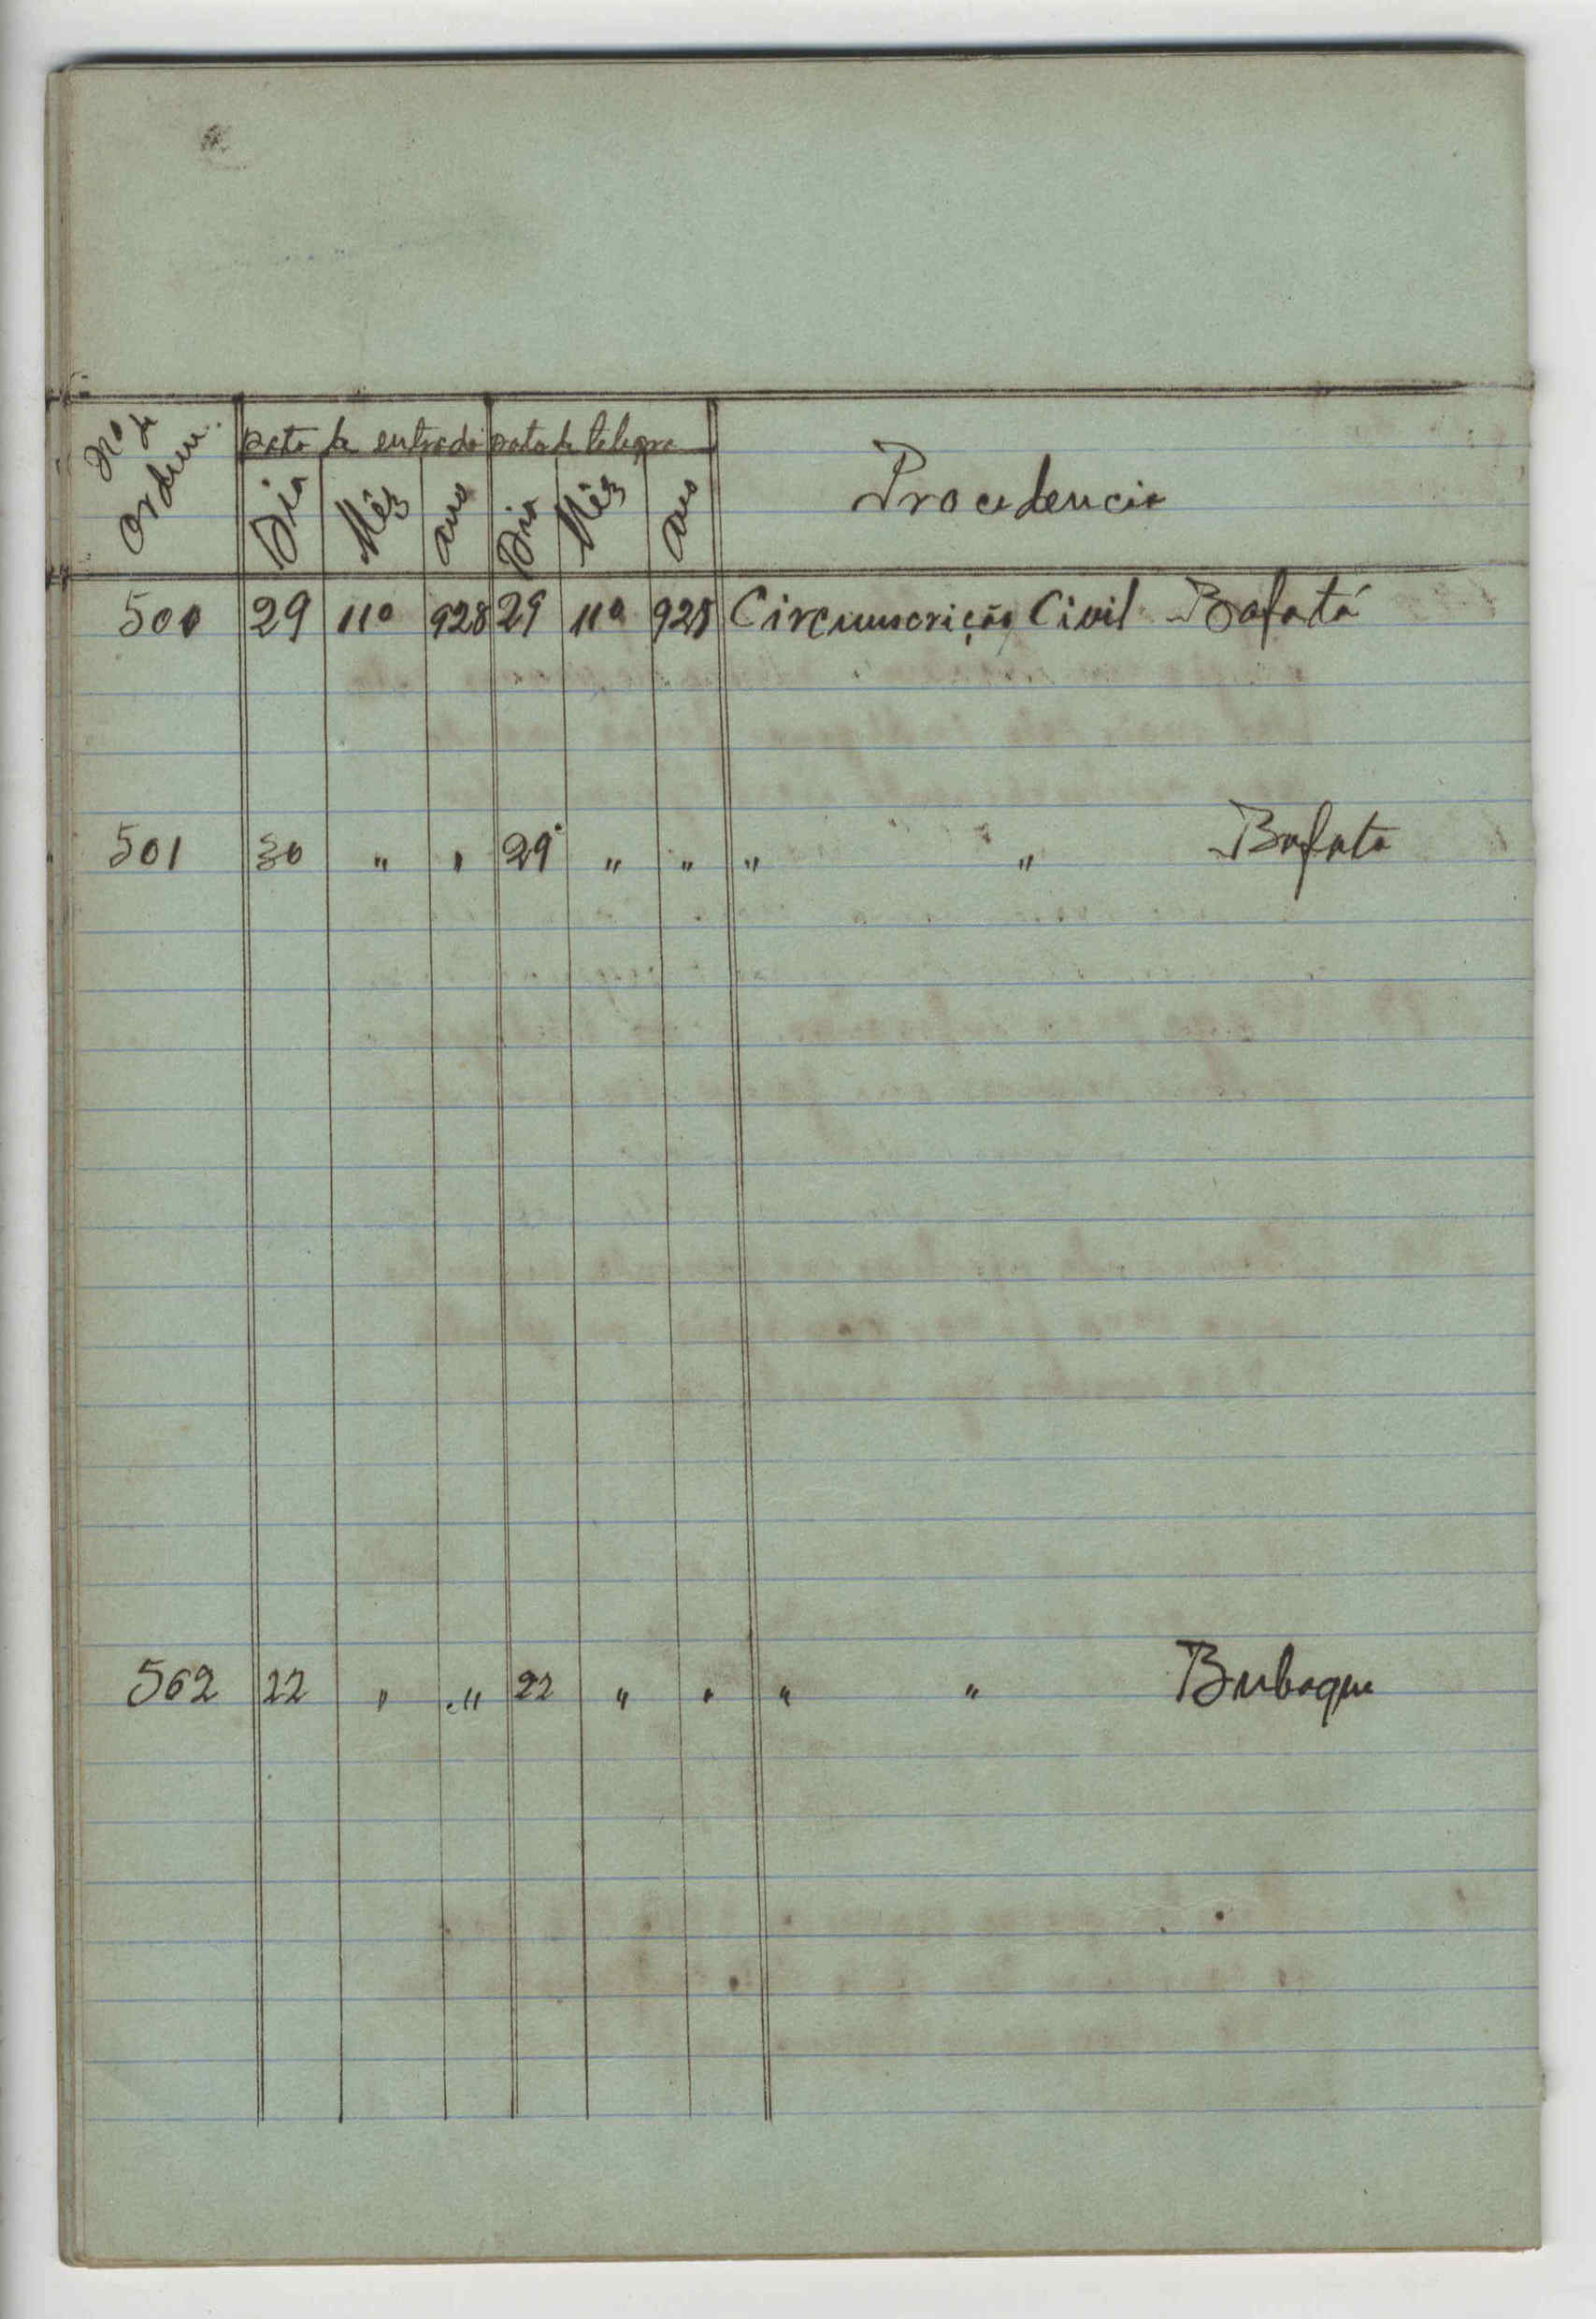 Nº de Ordem. Data de entrada Data de telegra Procedencia
Dia Mêz ano Dia Mêz ano
500 29 11º 928 29 11º 928 Circumscrição Civil Bafatá
501 30 " " 29 " " " " Bafata
562 22 " " 22 " " " " Bubaque